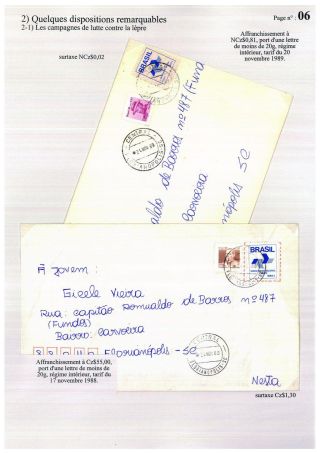 2) Quelques dispositions remarquables
Page n° : 06
2-1) Les campagnes de lutte contre la lèpre
Affranchissement à
NCz$0,81, port d'une lettre
de moins de 20g, régime
intérieur, tarif du 20
novembre 1989.
surtaxe NCz$0,02
BRASIL
CENTRAL
aldo de Barros nº 487 (Fund
Carvoeira
nópolis SC
BRASIL
À Jovem:
Gisele Vieira
Rua: Capitão Romualdo de Barros nº 487
(Fundos)
Bairro: Carvoeira
Florianópolis - SC
CENTRAL
FLORIANOPOLIS-SC
Nesta
Affranchissement à Cz$55,00,
port d'une lettre de moins de
20g, régime intérieur, tarif du
17 novembre 1988.
surtaxe Cz$1,30